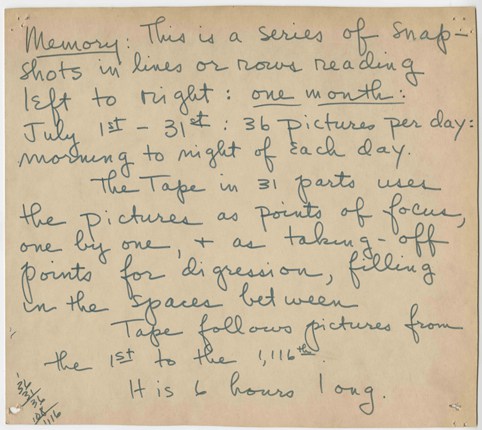 Memory: This is a series of snap-
shots in lines or rows reading
left to right: one month:
July 1st – 31st: 36 pictures per day:
morning to night of each day.
The Tape in 31 parts uses
the pictures as points of focus,
one by one, + as taking-off
points for digression, filling
in the spaces between
Tape follows pictures from
the 1st to the 1,116th.
It is 6 hours long.
36
31
36
108
1116